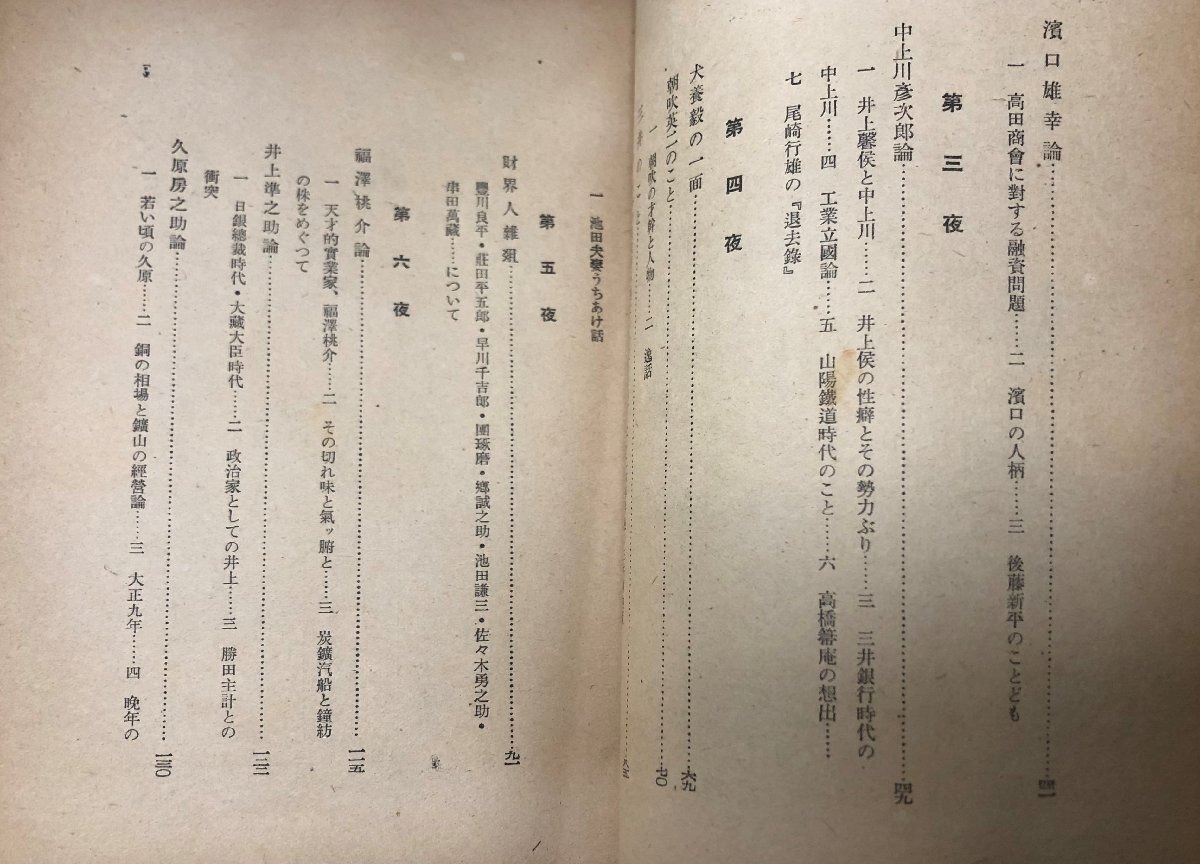 濱口雄幸論……四一
一 高田商會に對する融資問題……二 濱口の人柄……三 後藤新平のことども
第三夜
中上川彥次郎論……四九
一 井上馨侯と中上川……二 井上侯の性癖とその勢力ぶり……三 三井銀行時代の
中上川……四 工業立國論……五 山陽鐵道時代のこと……六 高橋箒庵の想出……
七 尾崎行雄の『退去錄』
第四夜
犬養毅の一面……六九
朝吹英二のこと……七〇
一 朝吹の才幹と人物……二 逸話
のこと……八五
一 池田夫妻うちあけ話
第五夜
財界人雜爼……九一
豐川良平・莊田平五郎・早川千吉郎・團琢磨・鄉誠之助・池田謙三・佐々木勇之助・
串田萬藏……について
第六夜
福澤桃介論……一一五
一 天才的實業家、福澤桃介……二 その切れ味と氣ッ腑と……三 炭鑛汽船と鐘紡
の株をめぐつて
井上準之助論……一二二
一 日銀總裁時代・大藏大臣時代……二 政治家としての井上……三 勝田主計との
衝突
久原房之助論……一三〇
一 若い頃の久原……二 銅の相場と鑛山の經營論……三 大正九年……四 晚年の